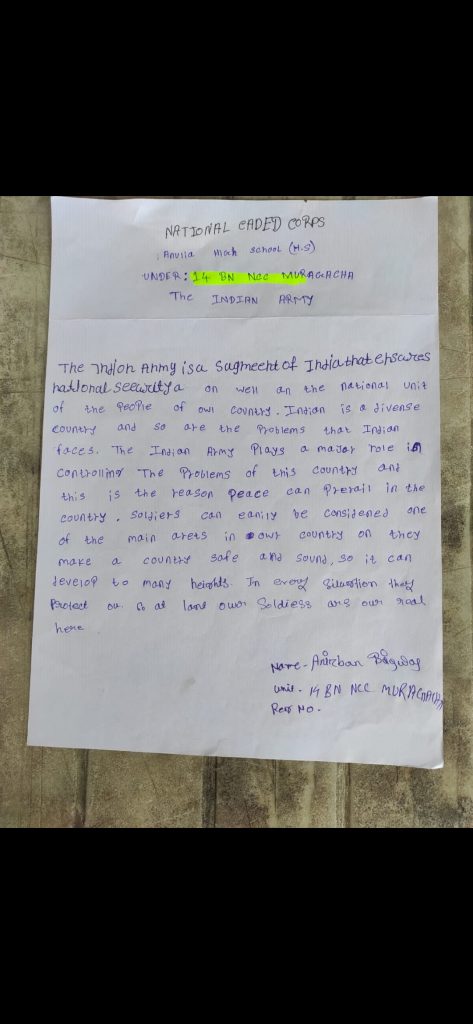 NATIONAL CADED CORPS
Anvila High School (H.S)
UNDER: 14 BN NCC MURAGACHA
The INDIAN ARMY
The Indion Anmy is a Sugmecht of India that ehsures
national seewritya on well an the national unit
of the People of owl Country. Indian is a divense
country and so are the Problems that Indian
faces. The Indian Army Plays a major role in
controlling The Problems of this country and
this is the reason peace can Prerail in the
country. Soldiers can eanily be considened one
of the main arets in owr country on they
make a country safe and sound, so it can
develop to many heights. In every Situostion they
Protect ou. so at lant owr Soldiess are our real
here
Name- Anirban
unit- 14 BN NCC MURAGACHA
Reg NO.